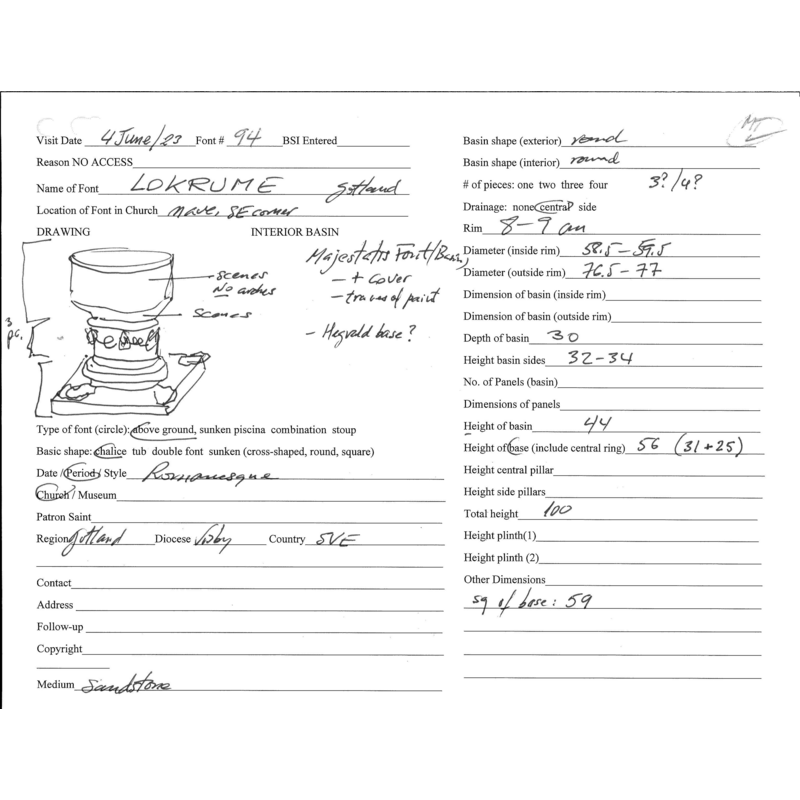 Visit Date 4 June/23 Font # 94 BSI Entered
Reason NO ACCESS
Name of Font LOKRUME Gotland
Location of Font in Church nave, SE corner
DRAWING INTERIOR BASIN
scenes
No arches
scenes
3 pc.
Majestatis Font/Basin,
- + cover
- traces of paint
- Hegvald base?
Type of font (circle): above ground, sunken piscina combination stoup
Basic shape: chalice tub double font sunken (cross-shaped, round, square)
Date / Period / Style Romanesque
Church / Museum
Patron Saint
Region Gotland Diocese Visby Country SVE
Contact
Address
Follow-up
Copyright
Medium Sandstone
Basin shape (exterior) round
Basin shape (interior) round
# of pieces: one two three four 3? /4?
Drainage: none central side
Rim 8-9 cm
Diameter (inside rim) 58.5-59.5
Diameter (outside rim) 76.5-77
Dimension of basin (inside rim)
Dimension of basin (outside rim)
Depth of basin 30
Height basin sides 32-34
No. of Panels (basin)
Dimensions of panels
Height of basin 44
Height of base (include central ring) 56 (31+25)
Height central pillar
Height side pillars
Total height 100
Height plinth(1)
Height plinth (2)
Other Dimensions
sq of base: 59